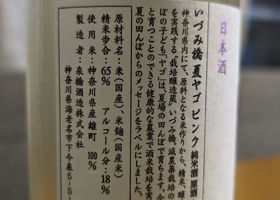 日本酒
いづみ橋 夏ヤゴ ピンク 純米酒 原酒
神奈川県内にて、原料となる米作りから、精米・醸
を実践する「栽培醸造蔵」いづみ橋。減農薬栽培の
ぼの子ども「ヤゴ」は、夏場の田んぼで育ちます。今
と育つことのできる健康的な農業で酒米栽培を実
夏の田んぼからのメッセージをラベルにしました。
原材料名:米(国産)・米麹(国産米)
精米歩合:65% アルコール分:18%
使用米:神奈川県産雄町 100%
製造者:泉橋酒造株式会社
神奈川県海老名市下今泉5-5